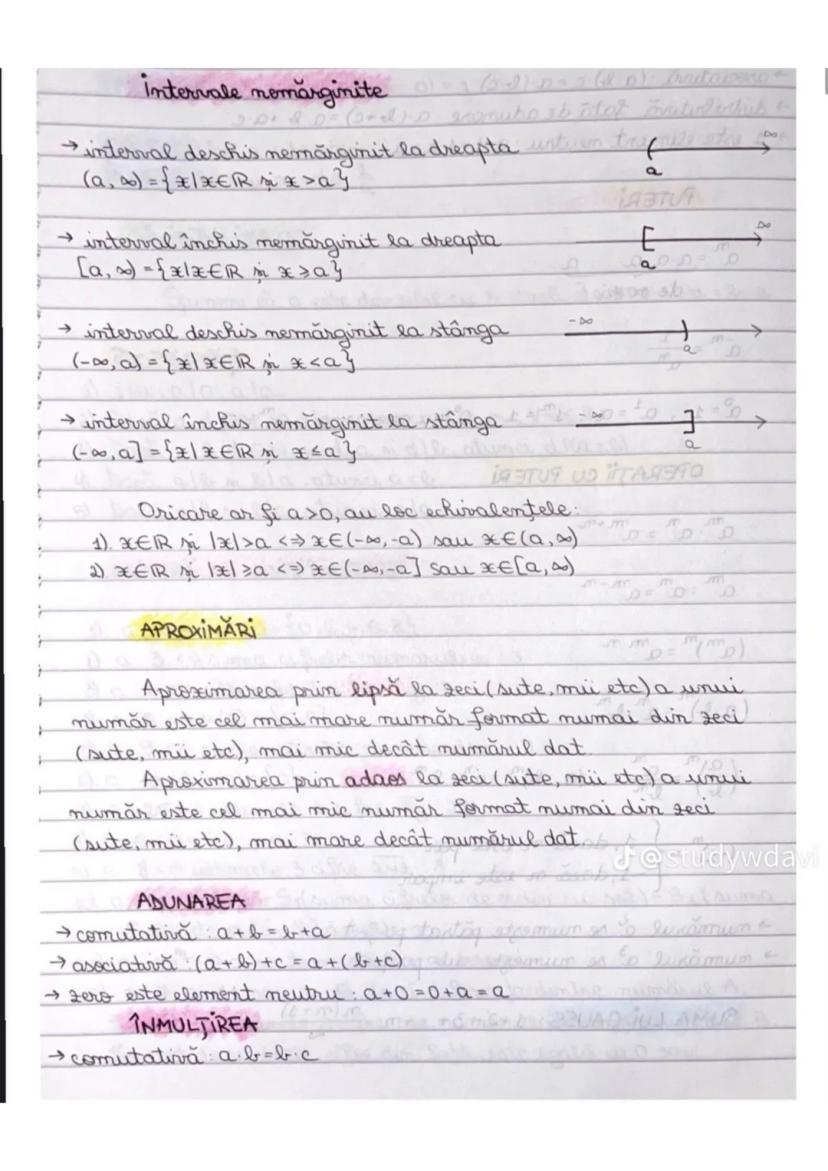 Intervale nemărginite
→ interval deschis nemărginit la dreapta
∞
(
a
(a, ∞) = {x|x∈ℝ și x>a}
→ interval închis nemărginit la dreapta
∞
[
a
[a, ∞) = {x|x∈ℝ și x≥a}
→ interval deschis nemărginit la stânga
-∞
)
a
(-∞, a) = {x|x∈ℝ și x<a}
→ interval închis nemărginit la stânga
-∞
]
a
(-∞, a] = {x|x∈ℝ și x≤a}
Oricare ar fi a>0, au loc echivalențele:
1). x∈ℝ și |x|>a <=> x∈(-∞,-a) sau x∈(a,∞)
2). x∈ℝ și |x|≥a <=> x∈(-∞,-a] sau x∈[a,∞)
APROXIMĂRI
Aproximarea prin lipsă la zeci (sute, mii etc) a unui
număr este cel mai mare număr format numai din zeci
(sute, mii etc), mai mic decât numărul dat.
Aproximarea prin adaos la zeci (sute, mii etc) a unui
număr este cel mai mic număr format numai din zeci
(sute, mii etc), mai mare decât numărul dat
@studywdavi
ADUNAREA
→ comutativă: a+b=b+a
→ asociativă: (a+b)+c=a+(b+c)
→ zero este element neutru: a+0=0+a=a
ÎNMULȚIREA
→ comutativă: a·b=b·c